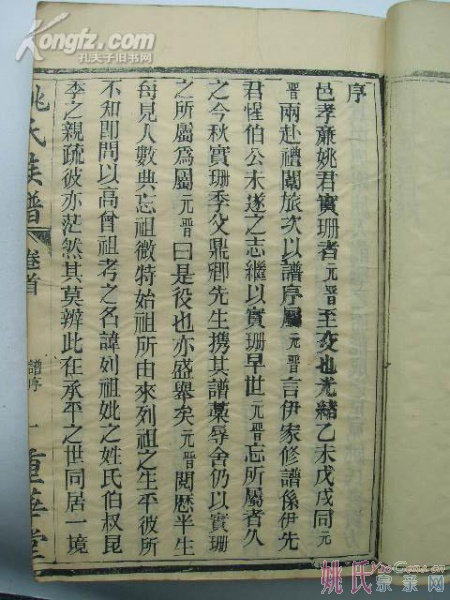 Kongfz.com
孔夫子旧书网
序
邑孝廉姚君實珊者元晋至友也光緒乙未戊戌同元
晋兩赴禮闈旅次以譜序屬元晋言伊家修譜係伊先
君惺伯公未遂之志繼以實珊早世元晋忘所屬者久
之今秋實珊季父鼎卿先生携其譜藁辱舍仍以實珊
之所屬爲屬元晋曰是役也亦盛舉矣元晋閱歷半生
每見人數典忘祖微特始祖所由來列祖之生平彼所
不知卽問以高曾祖考之名諱列祖妣之姓氏伯叔昆
季之親疏彼亦茫然其莫辨此在承平之世同居一境
姚氏族譜
卷首
譜序
一
重華堂
姚氏宗亲网